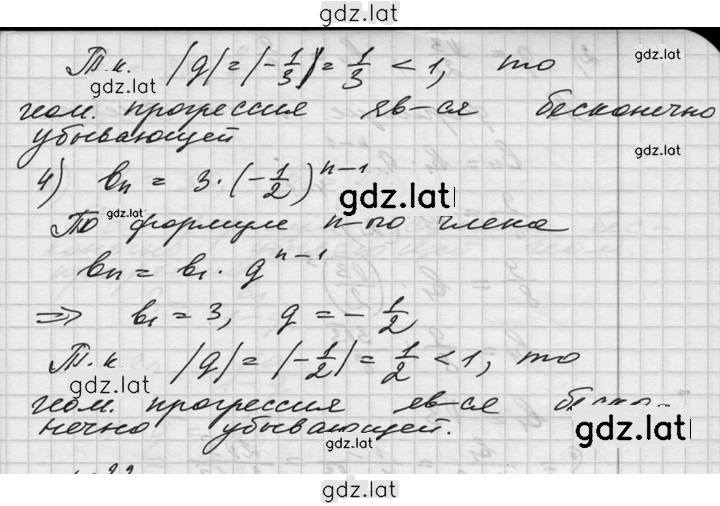 gdz.lat
Т.к. |q|=|-1/3|=1/3 <1, то
gdz.lat
геом. прогрессия яв-ся бесконечно
убывающей
gdz.lat
4) bₙ = 3·(-1/2)ⁿ⁻¹
gdz.lat
gdz.lat
По формуле n-го члена
bₙ = b₁·qⁿ⁻¹
gdz.lat
⇒ b₁ = 3, q = -1/2
Т.к |q|=|-1/2|=1/2 <1, то
gdz.lat
геом. прогрессия яв-ся беско-
нечно убывающей.
gdz.lat
gdz.lat
gdz.lat